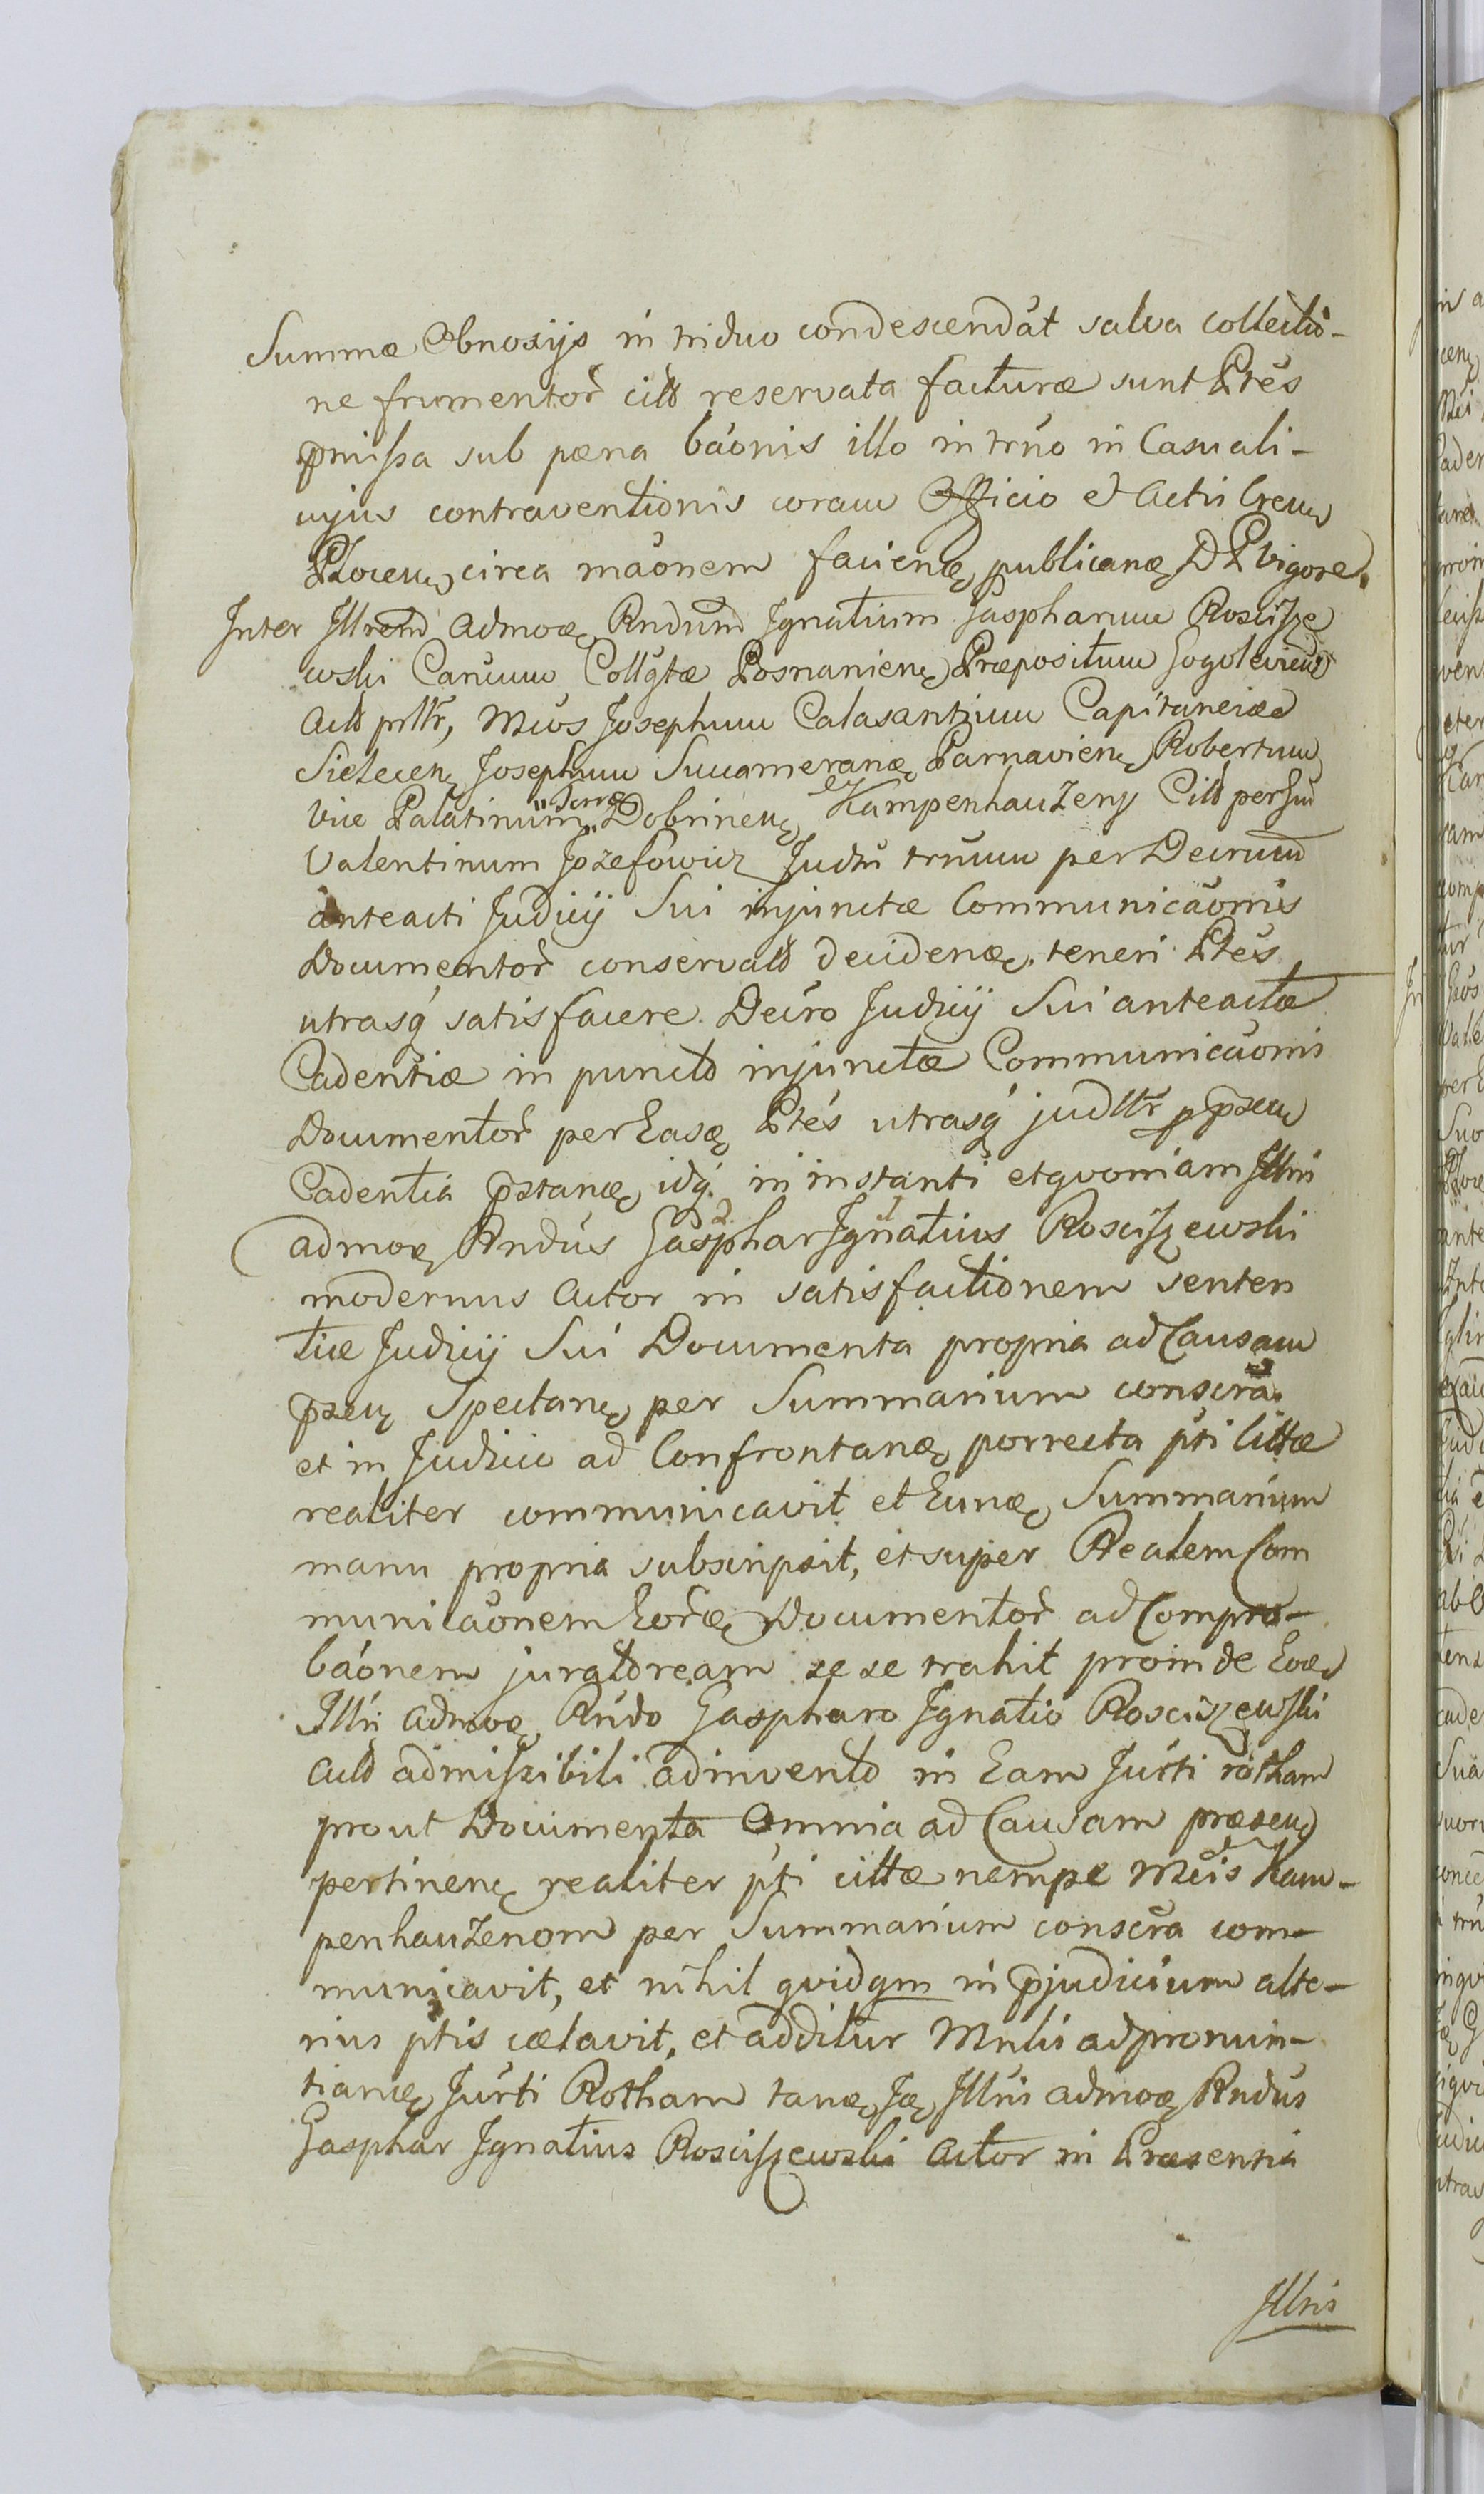 Summæ Obnoxijs in triduo condescendát salva collectio-
ne frumentor̃ cit̃o reservata facturæ sunt Ptẽs
p̃miſsa sub pæna bãonis illo in trũo in Casu ali-
cujus contraventionis coram Officio et Actis Cren̨
Plocen̨ circa mãonem faciend̨ publicand̨ D P Vigore.
Inter Illrem Admod̨ Rndum Ignatium Gaspharum Rosciſze
wski Canc̃um Collgtæ Posnanien̨ Præpositum Gogolevien̨
Act̃o prltr̃, Mcos Josephum Calasantium Capitaneidæ
Sielecen̨ Josephum Succameranid̨ Parnavien̨ Robertum
Vice Palatinum Terræ Dobrinen̨ Kampenhauzeny Cit̃o perſm̃
Valentinum Jozefowicz Judm̃ trũum per Decrum
anteacti Judicij Sui injunctæ Communicãonis
Documentor̃ conservat̃o decidend̨ teneri Ptẽs
utrasq́ satisfacere Decro Judicij Sui anteactæ
Cadentiæ in puncto injunctæ Communicãonis
Documentor̃ per Easd̨ Ptẽs utrasq́ judltr̃ p̃ p̃sen̨
Cadentia p̃stand̨ idq́ in instanti et qvoniam Illris
admod̨ Rndus Gasphar 2 Ignatius 1 Rosciſzewski
modernus Actor in satisfactionem Senten
tiæ Judicij Sui Documenta propria ad Causam
p̃sen̨ Spectan̨ per Summarium conscr̃a
et in Judicio ad Confrontand̨ porrecta pti Cittæ
realiter communicavit et Eund̨ Summarium
manu propria subscripsit, et super Realem Com
municãonem Eord̨ Documentor̃ ad Compro-
bãonem juratoream se se trahit proinde Eod̨
Illri Admod̨ Rndo Gaspharo Ignatio Rosciſzewſki
Act̃o admiſsibili adinvento in Eam Jurti rotham
prout Documenta Omnia ad Causam præsen̨
pertinen̨ realiter pti cittæ nempe Mcis Kam-
penhauzenom per Summarium conscr̃a com-
municavit, et nihil qvidqm in p̃judicium alte-
rius ptis cælavit, et additur Mnlis ad pronun-
tiand̨ Jurti Rotham tand̨ Id̨ Illris admod̨ Rndus
Gasphar Ignatius Rosciſzewski Actor in Præsentia
Illris